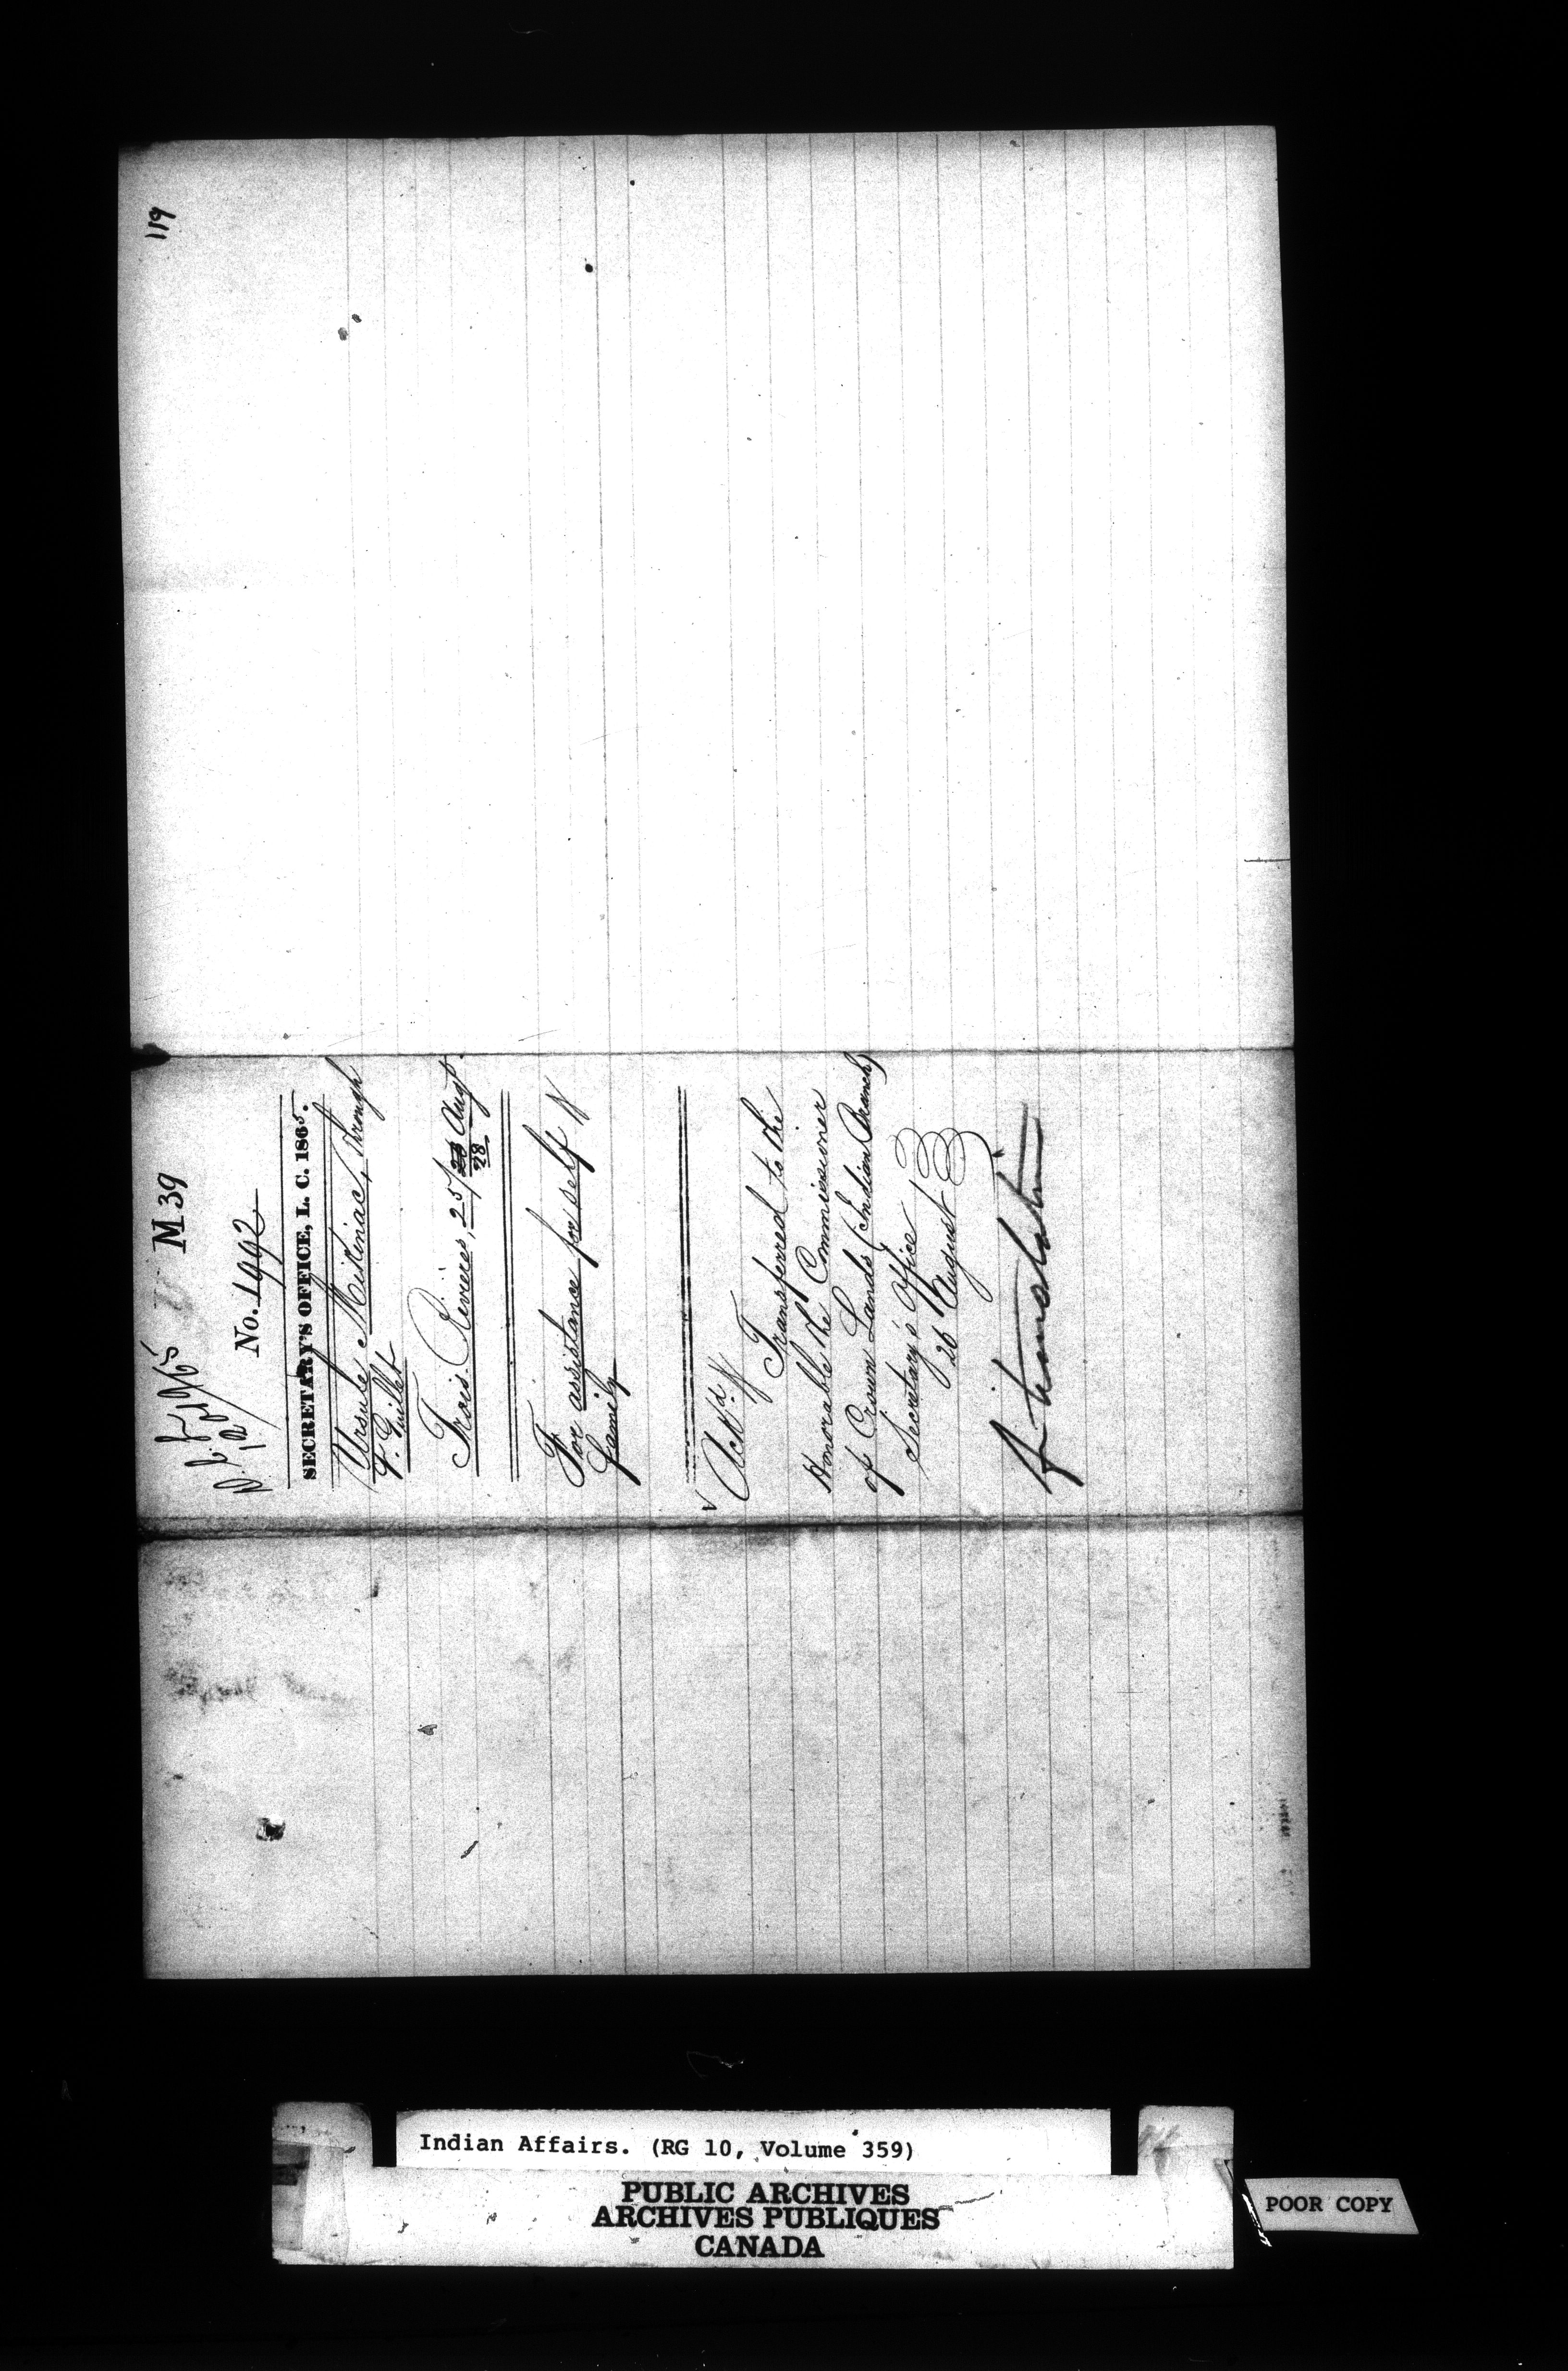 119
M 39
No. 1992
SECRETARY'S OFFICE, L. C. 1865.
Ursule Mistiniac, through
F. Guillet
Trois-Rivières, 25/26 Augt.
28
For assistance for self &
family
Ackd.
Transferred to the
Honorable the Commissioner
of Crown Lands (Indian Branch)
Secretary's Office
26 August
Indian Affairs. (RG 10, Volume 359)
PUBLIC ARCHIVES
ARCHIVES PUBLIQUES
CANADA
POOR COPY